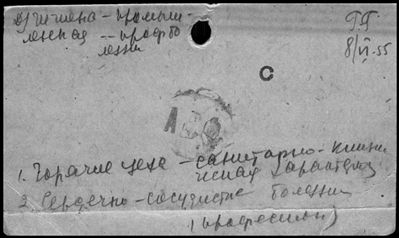 гигиена - промыш-
ленная -- профбо
лезни
ГГ
8/VI-55
С
1. Горячие цеха - санитарно-клини
ческая характер
2. Сердечно-сосудистые болезни
(професси